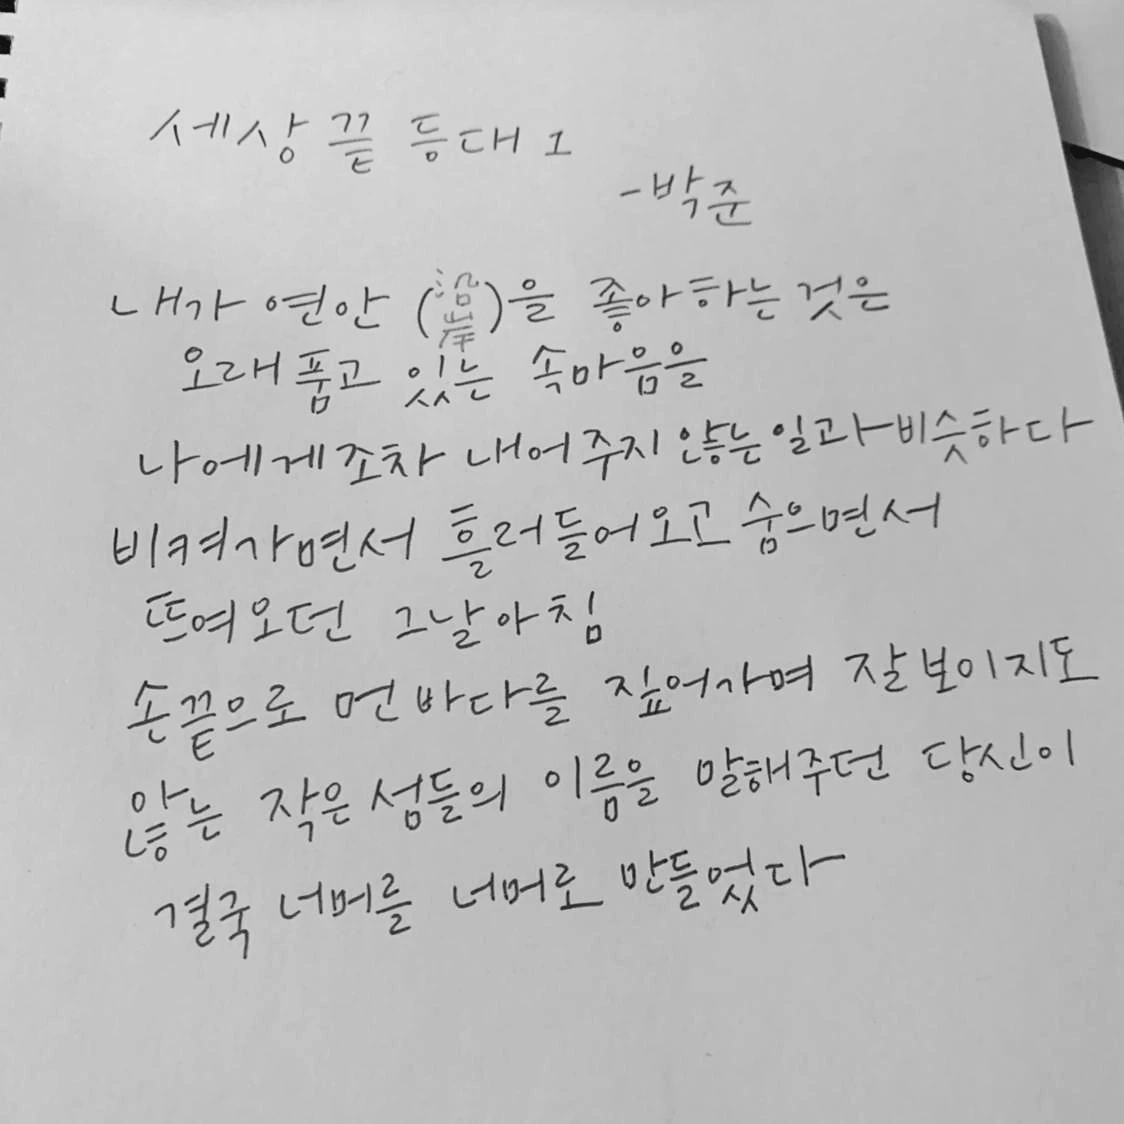 세상 끝 등대 1
-박준
내가 연안(沿岸)을 좋아하는 것은
오래 품고 있는 속마음을
나에게조차 내어주지 않는 일과 비슷하다
비켜가면서 흘러들어오고 숨으면서
뜨여오던 그날 아침
손끝으로 먼 바다를 짚어가며 잘 보이지도
않는 작은 섬들의 이름을 말해주던 당신이
결국 너머를 너머로 만들었다